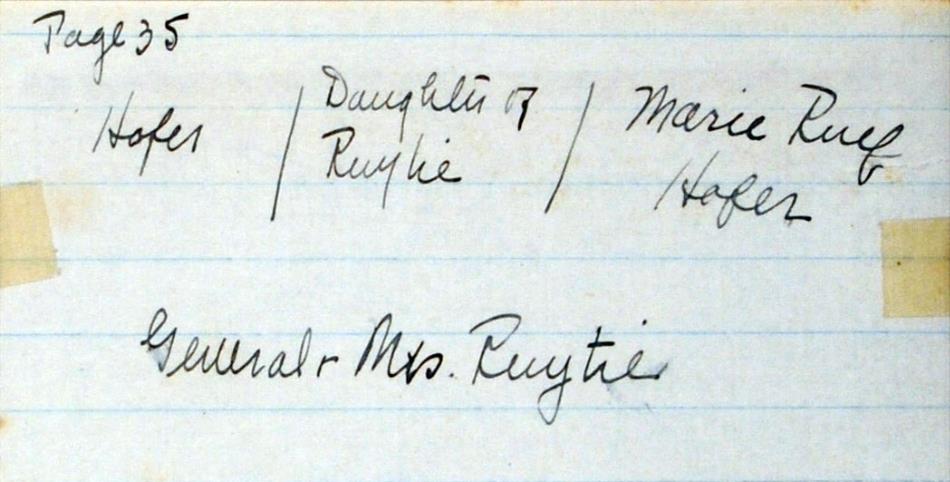 Page 35
Hofer / Daughter of Ruytie / Marie Ruef Hofer
General & Mrs. Ruytie